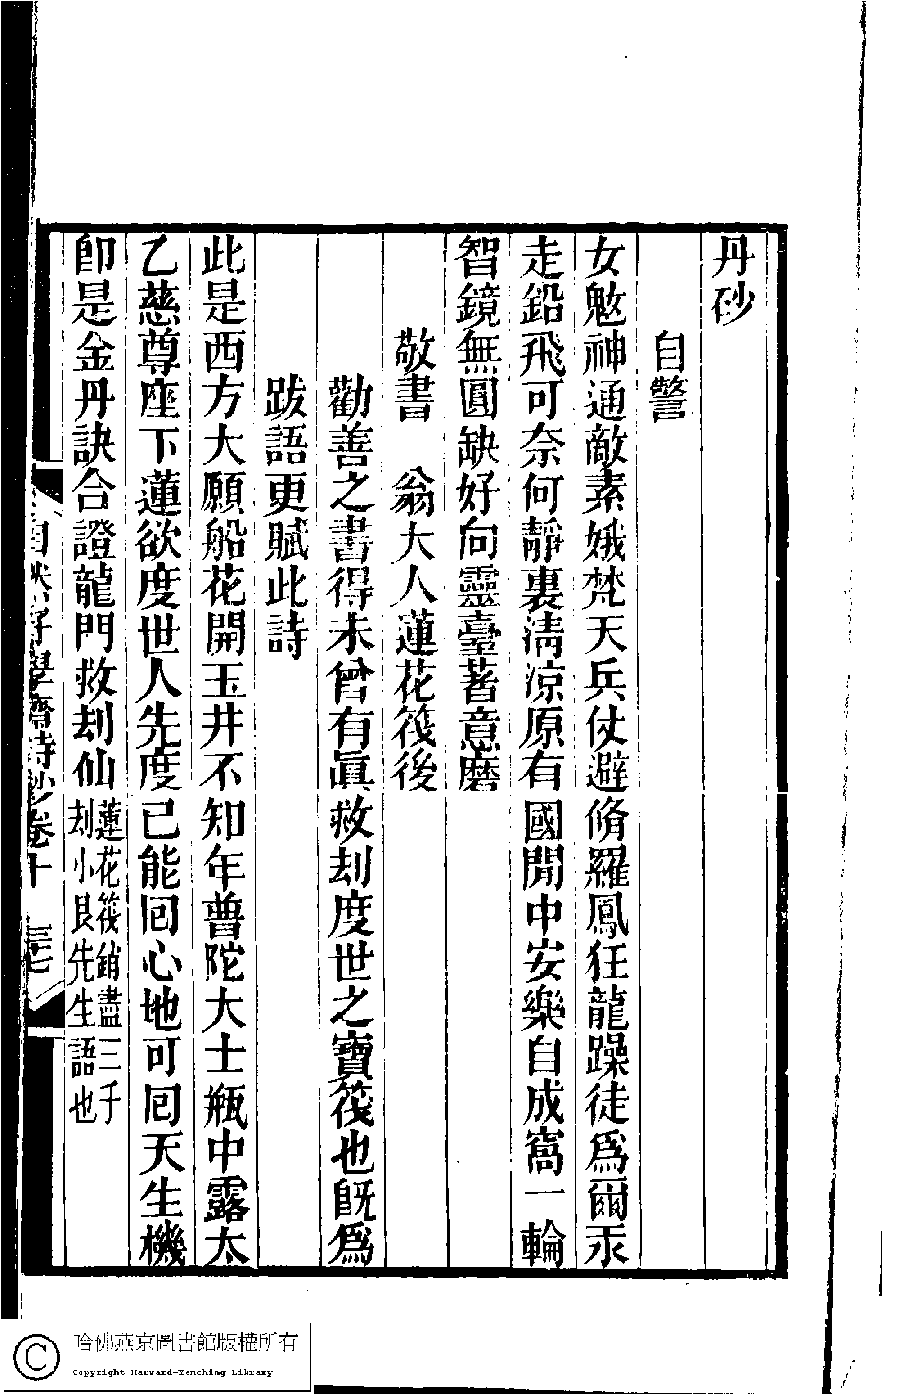 丹砂
自警
女魃神通敵素娥梵天兵仗避脩羅鳳狂龍躁徒爲爾汞
走鉛飛可奈何靜裏淸凉原有國閒中安樂自成窩一輪
智鏡無圓缺好向靈臺著意磨
敬書　翁大人蓮花筏後
勸善之書得未曾有眞救刦度世之寶筏也旣爲
跋語更賦此詩
此是西方大願船花開玉井不知年普陀大士瓶中露太
乙慈尊座下蓮欲度世人先度已能囘心地可囘天生機
卽是金丹訣合證龍門救刦仙
蓮花筏銷盡三千
刦小艮先生語也
自然好學齋詩鈔卷十
哈佛燕京圖書館版權所有
Copyright Harvard-Yenching Library